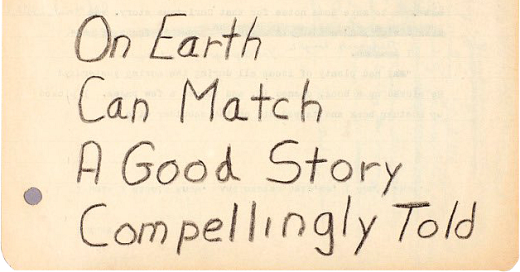 On Earth
Can Match
A Good Story
Compellingly Told